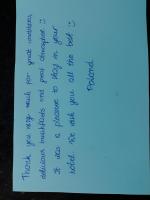 Thank you very much for great weekend,
delicious breakfasts and good atmosphere :)
It was a pleasure to stay in your
hotel. We wish you all the best :)
Poland